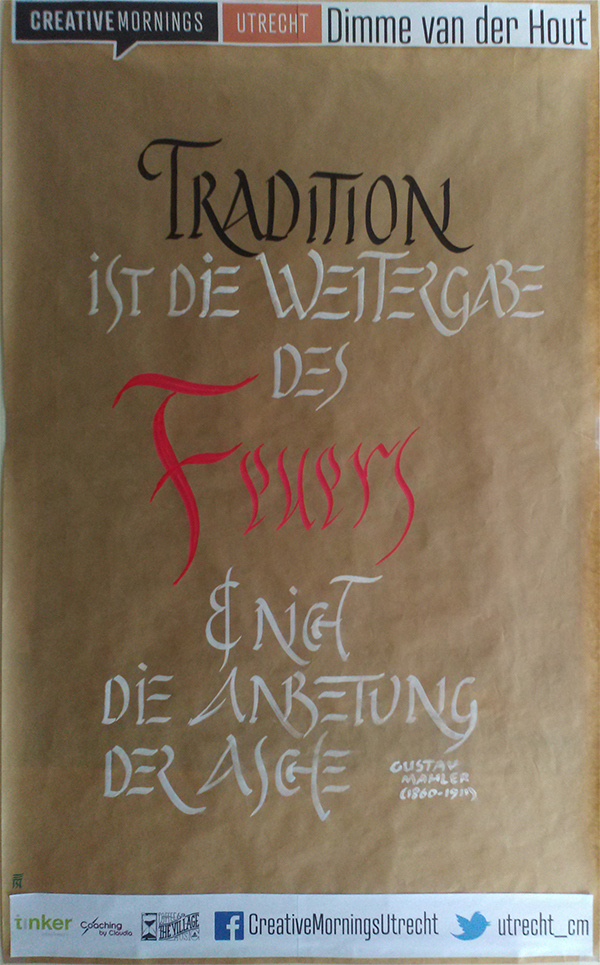 CREATIVEMORNINGS UTRECHT Dimme van der Hout
TRADITION
iST DiE WEITERGABE
DES
Feuers
& NiCHT
DiE ANBETUNG
DER ASCHE
GUSTAV
MAHLER
(1860-1911)
tinker Coaching by Claudia THE VILLAGE CreativeMorningsUtrecht utrecht_cm